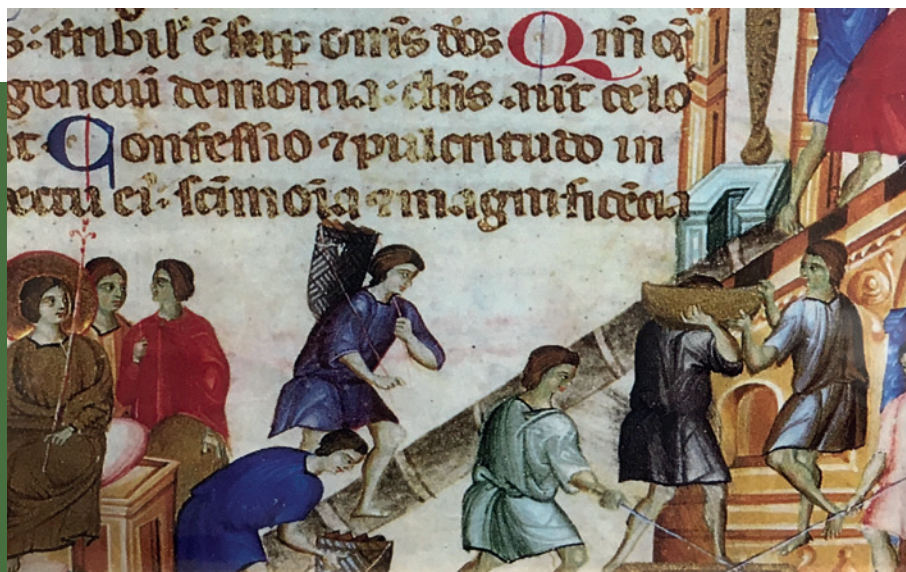 s: tribil' ē sup omīs dos Qm̄ oī
genciū demonia: dn̄s aūt celo
it Confessio ⁊ pulcritudo in
ectu ei': scīmoīa ⁊ magnificēcia